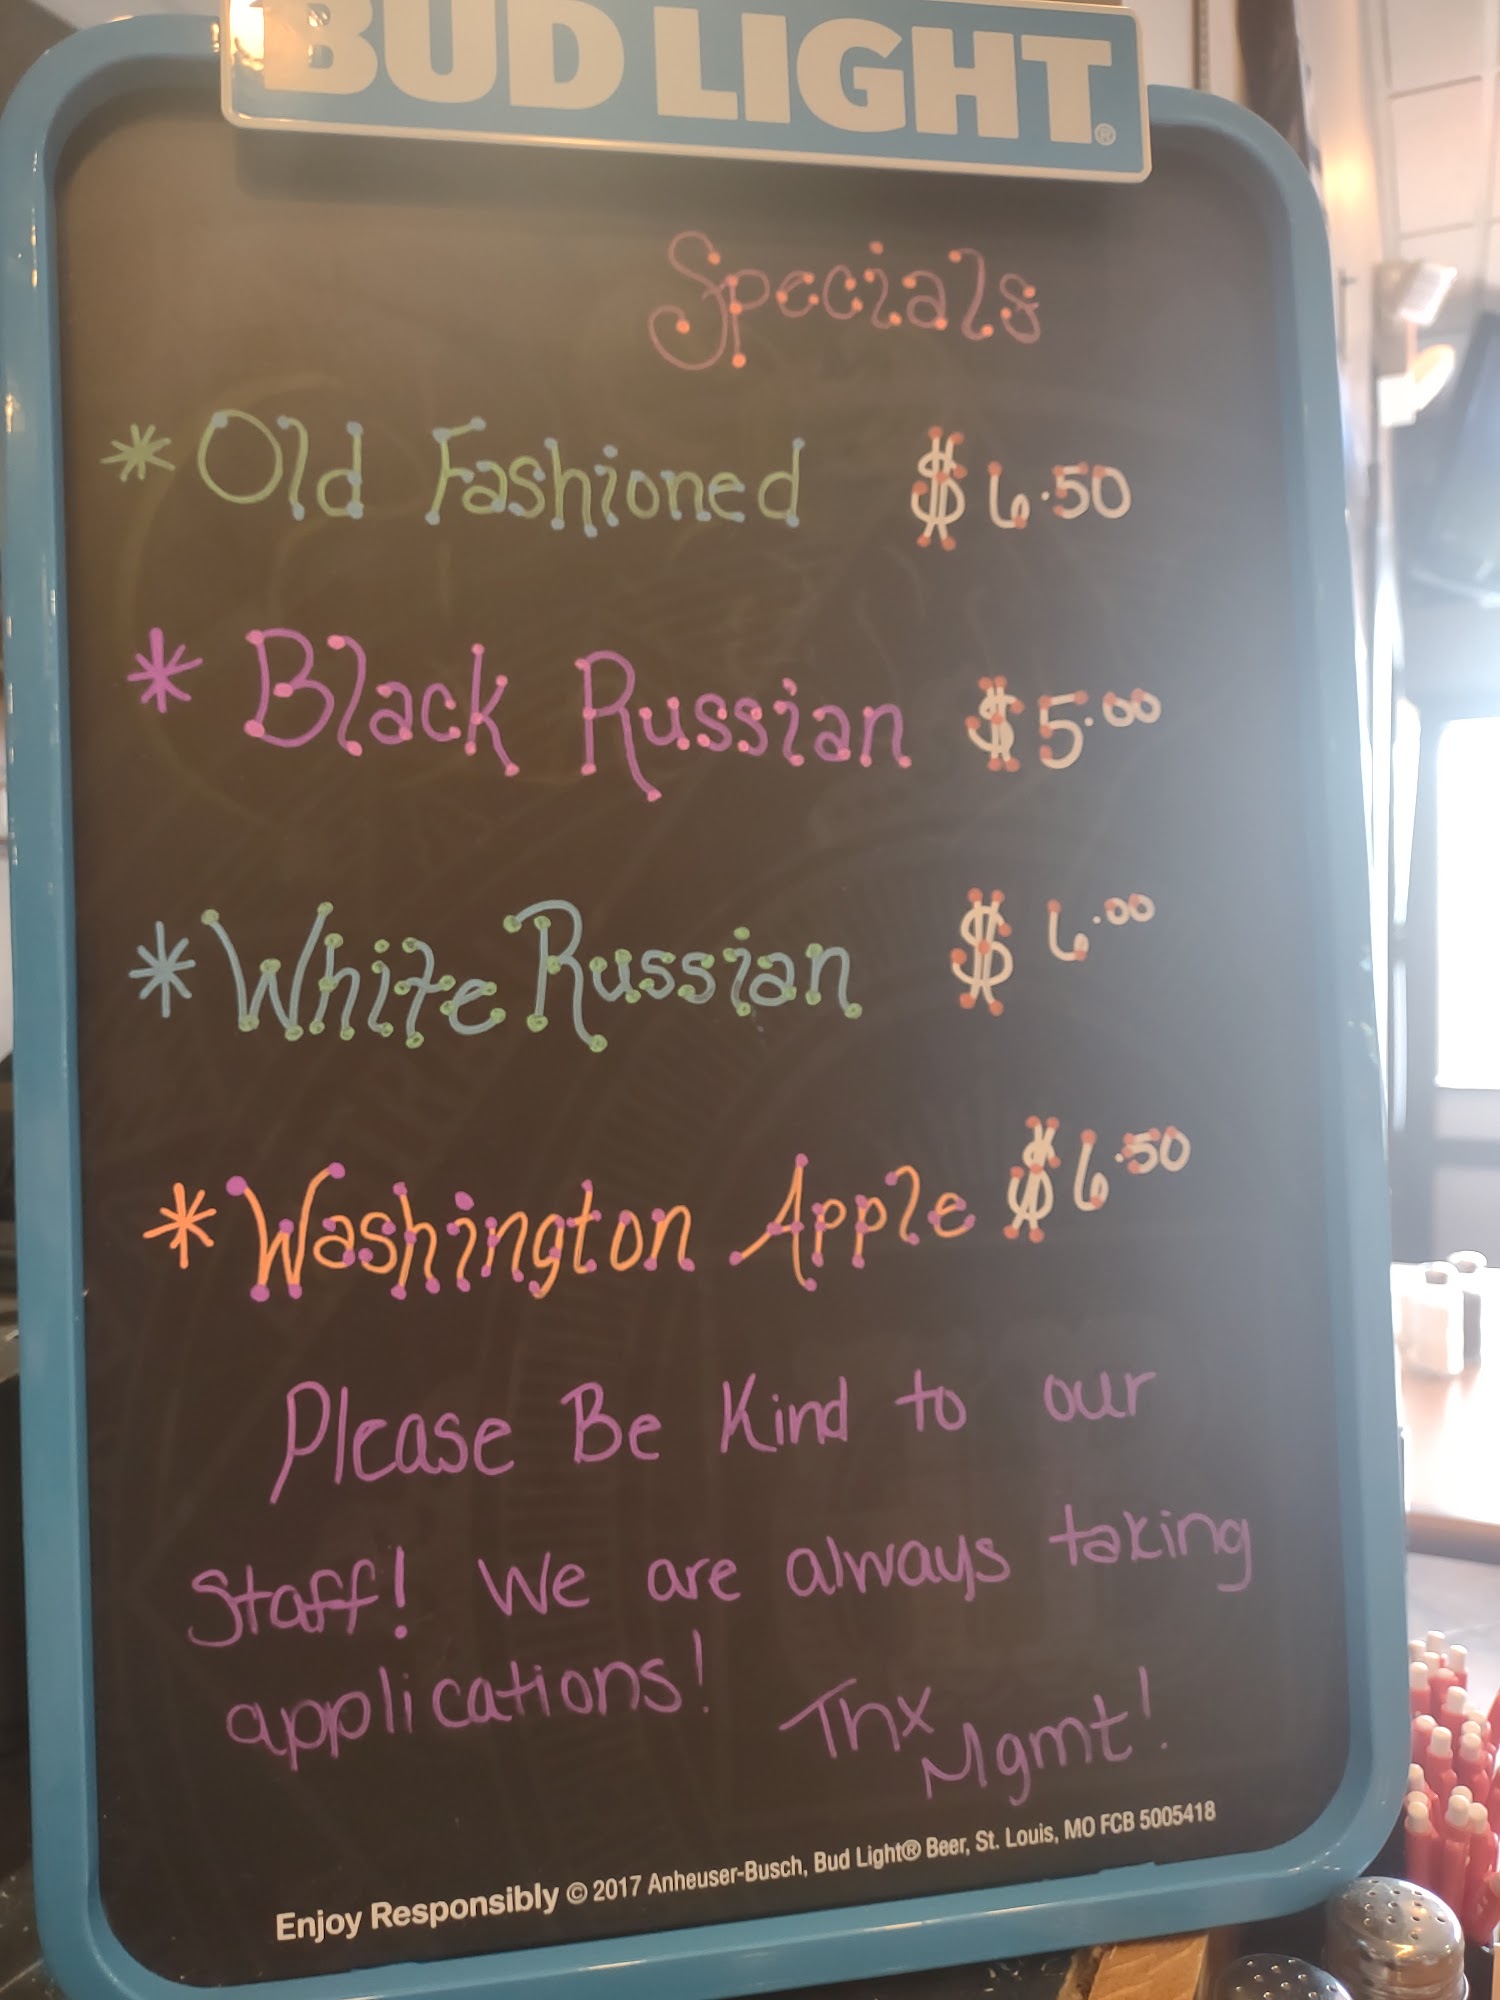 BUD LIGHT®
Specials
* Old Fashioned $6.50
* Black Russian $5.00
* White Russian $6.00
* Washington Apple $6.50
Please Be Kind to our
Staff! We are always taking
applications! Thx
Mgmt!
Enjoy Responsibly © 2017 Anheuser-Busch, Bud Light® Beer, St. Louis, MO FCB 5005418